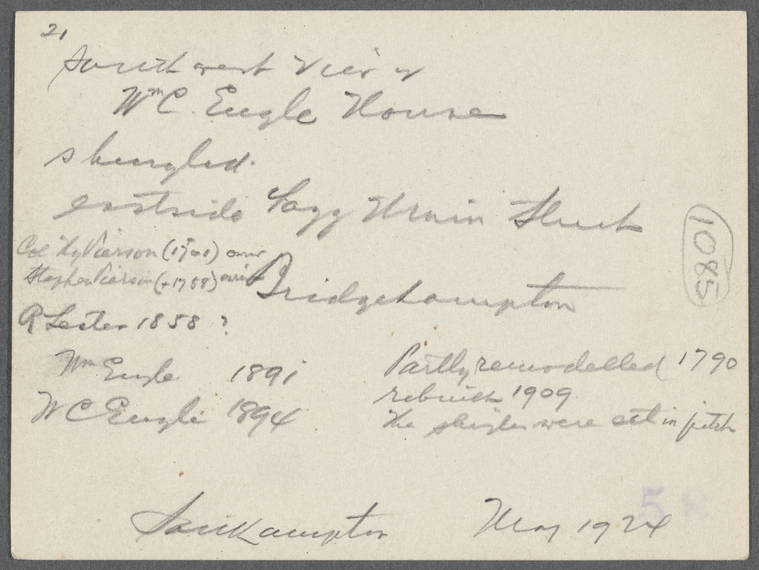 21
Southwest View of
Wm C. Eugle House
shingled.
eastside Sagg Main Street
Col Hy Pierson (1701) owner
Stephen Pierson (+1758) owner
Bridgehampton
R Lester 1858 ?
Wm Eugle 1891
W C Eugle 1894
Partly remodelled 1790
rebuilt 1909
the shingles were set in pitch
Southampton May 1924
1085
5